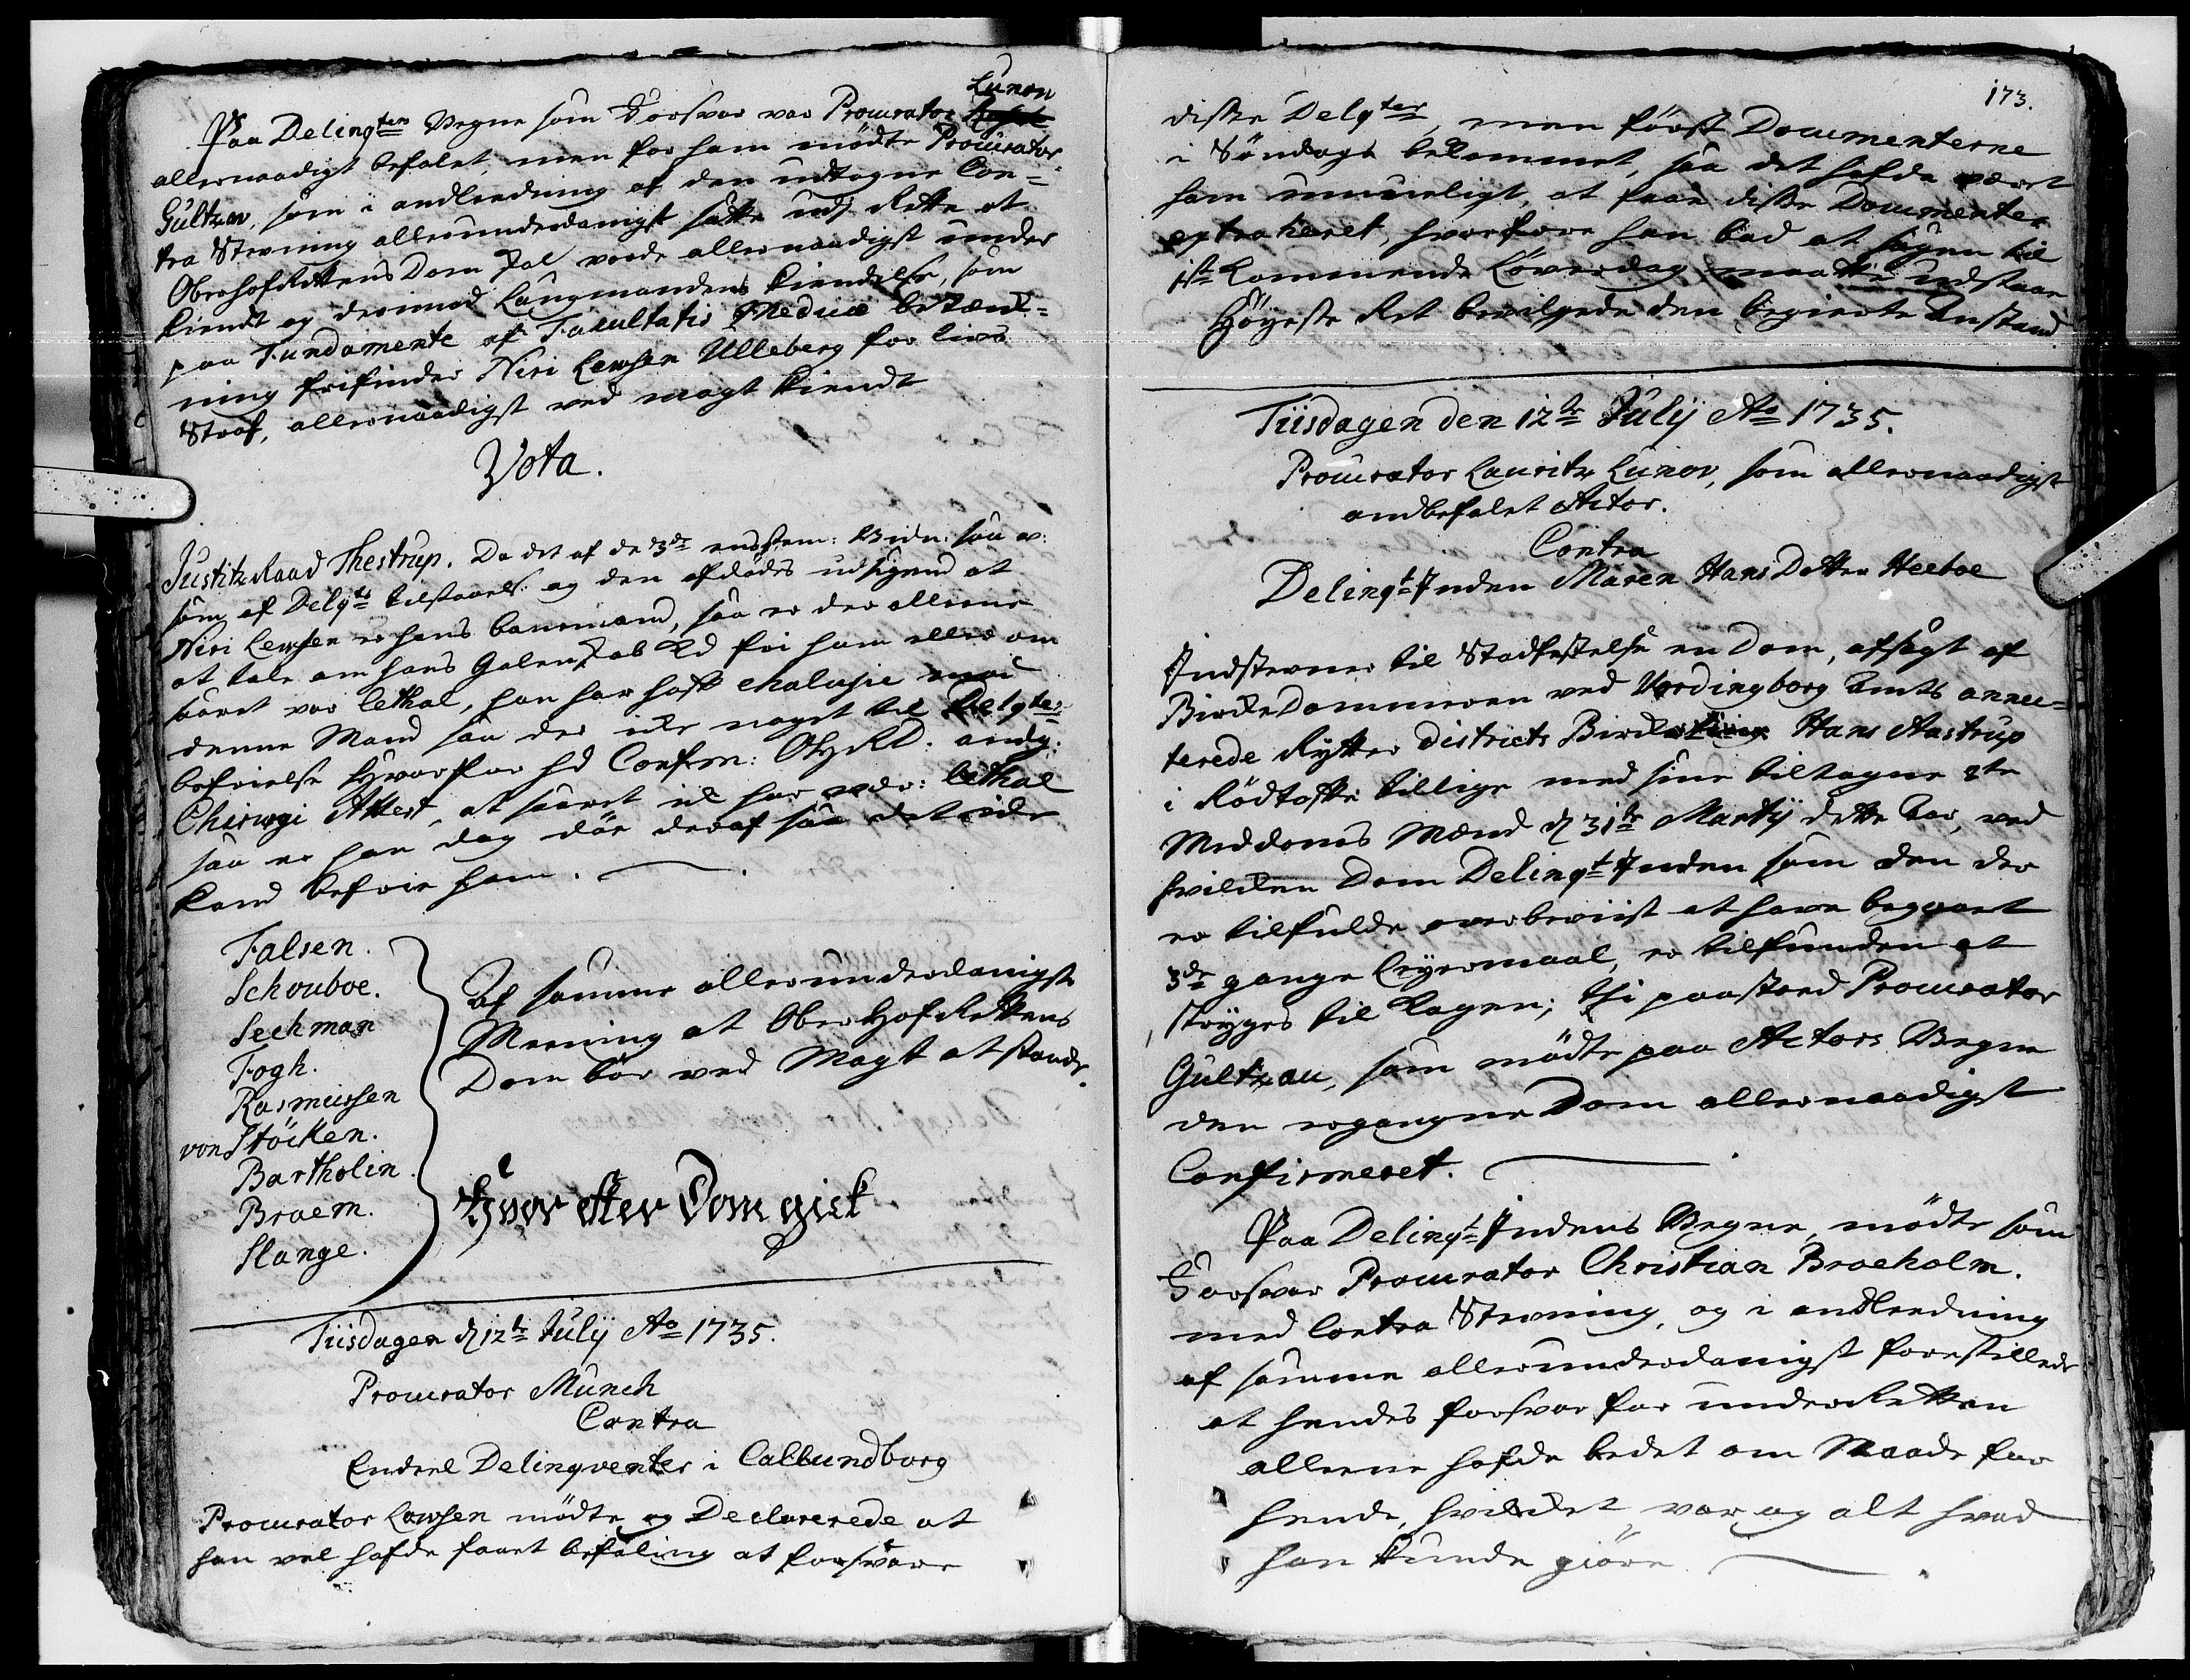 Lunov
Paa Delinqtens Vegne som Forsvar var Procurator
allernaadigst befalet, men for ham mödte Procurator
Gultzow, som i andledning af den udtagne Con-
tra Stevning allerunderdanigst satte udj Rette at
OberhofRettens Dom skal vorde allernaadigst under
kiendt og derimod Laugmandens Kiendelse, som
paa Fundamente af Facultatis Medicæ betænk-
ning frifinder Niri Lewsen Ulleberg for livs
Straf, allernaadigst ved magt kiendt
Vota.
Justitz Raad Thestrup. Da det af de 3de eensstem: Vidn: saa v:
som af Delqts tilstaaels: og den afdödes udsigend at
Niri Lewsen er hans banemand, saa er der alleene
at tale om hans Galenskab kd fri ham eller om
saaret var lethal, han har haft chalusie med
denne Mand saa der icke noget til Delqtes
befrielse Hvorfor jd Confirm: OHRD. andg:
Chirurgi Attest, at saaret ic har vær: lethal
saa er han dog död deraf saa det icke
kand befrie ham.
Falsen.
Schouboe.
Sechman
Fogh.
Rasmussen
von Stöcken.
Bartholin.
Braëm.
Slange.
Af samme allerunderdanigste
Meening at OberHofRettens
Dom bör ved Magt at stande.
Hvor efter Dom gick
Tiisdagen d 12te Julij Ao 1735.
Procurator Munch
Contra
Endeel Delinqventer i Callundborg
Procurator Lowsen mödte og Declarerede at
han vel hafde faaet befaling at forsvare
173.
disse Delqter, men först Documenterne
i Söndags bekommet, saa det hafde været
ham umueligt, at faae disse Documenter
extraheret, hvorfore han bad at sagen til
1ste kommende Löverdag maatte udstaae
Höyeste Ret bevilgede den begierte Anstand.
Tiisdagen den 12te Julij Ao 1735.
Procurator Lauritz Lunov, som allernaadigst
andbefalet Actor.
Contra
Delinqt Inden Maren Hans Datter Heeboe
Indstevner til Stadfestelse en Dom, afsagt af
BirkeDommeren ved Vordingborg Amts annec-
terede Rytter Districts Birketing Hans Aastrup
i Rödtofte tillige med sine tiltagne 8te
Meddoms Mænd d 31te Martij dette Aar, ved
hvilken Dom Delinqt Inden som den der
er tilfulde overbeviist at have begaaet
3de gange Leyermaal, er tilfunden at
stryges til Kagen; thi paastoed Procurator
Gultzau, som mödte paa Actors Vegne
den ergangne Dom allernaadigst
Confirmeret.
Paa Delinqt Indens Vegne, mödte som
Forsvar Procurator Christian Braeholm.
med Contra Stevning, og i andledning
af samme allerunderdanigst forestillede
at hendes forsvar for underRetten
alleene hafde bedet om Naade for
hende, hvilcket var og alt hvad
han kunde giöre.